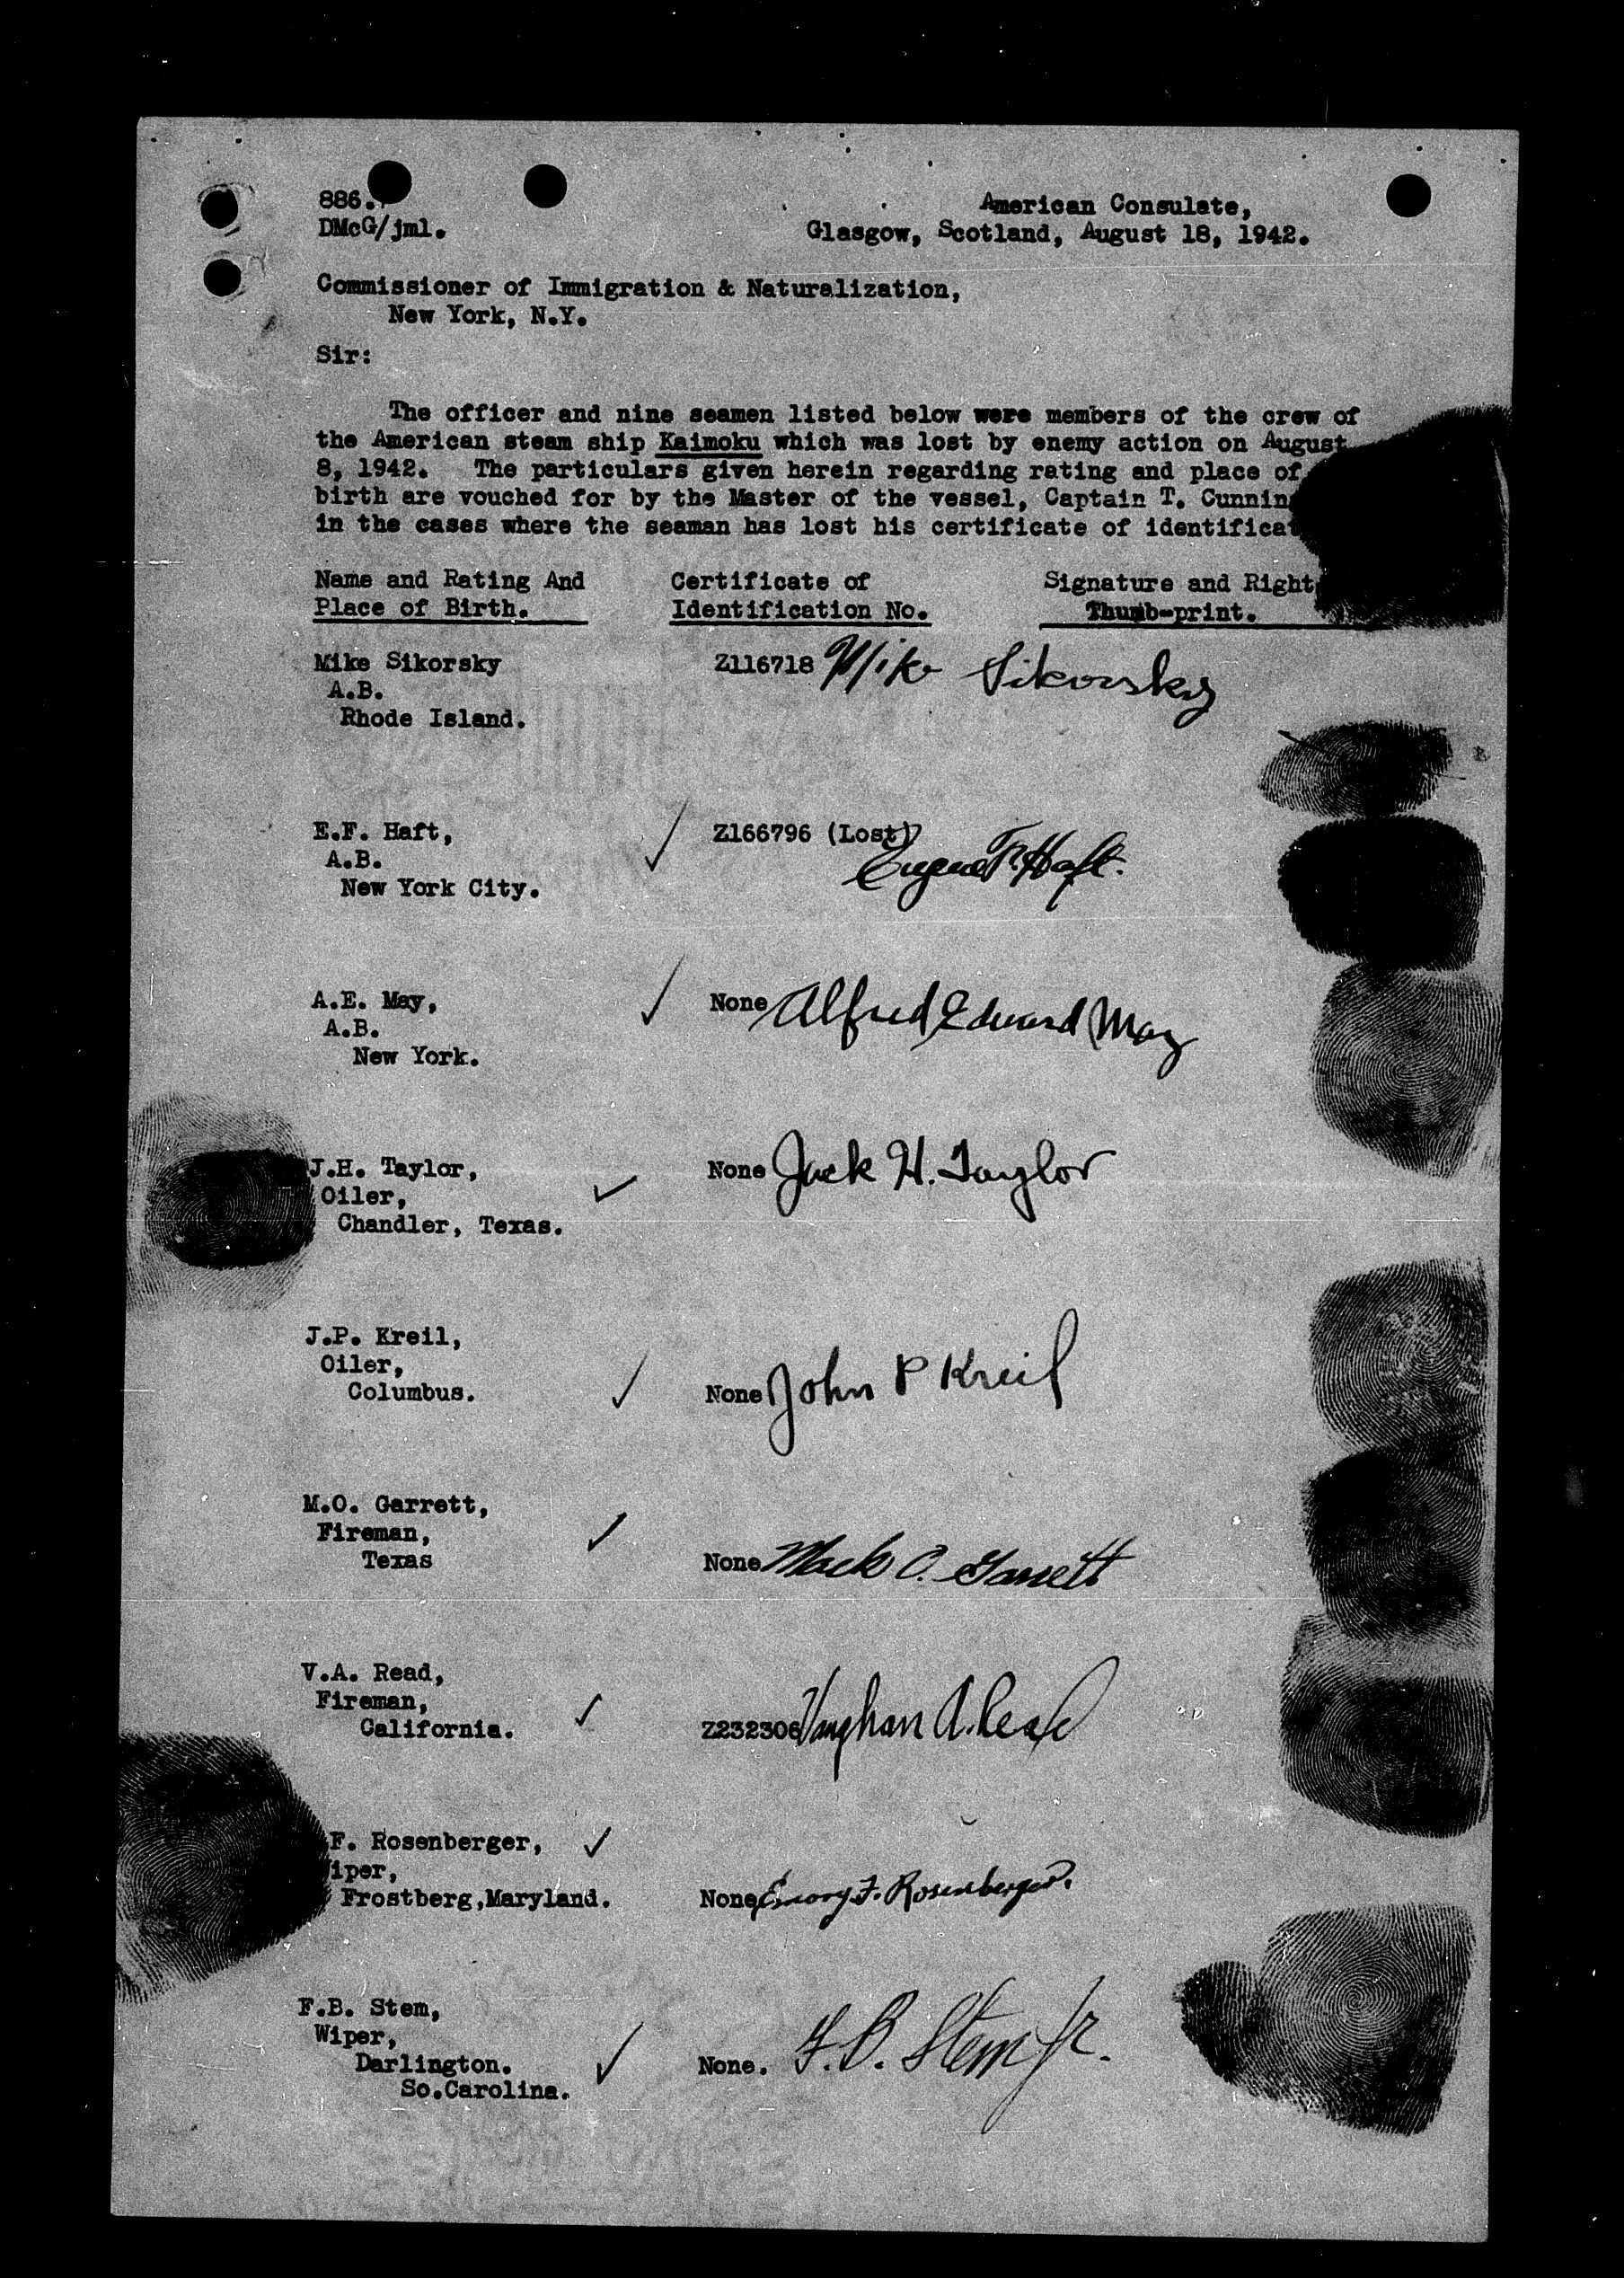 886.
American Consulate,
DMcG/jml.
Glasgow, Scotland, August 18, 1942.
Commissioner of Immigration & Naturalization,
New York, N.Y.
Sir:
The officer and nine seamen listed below were members of the crew of
the American steam ship Kaimoku which was lost by enemy action on August
8, 1942. The particulars given herein regarding rating and place of
birth are vouched for by the Master of the vessel, Captain T. Cunnin
in the cases where the seaman has lost his certificate of identificat
Name and Rating And Certificate of Signature and Right
Place of Birth. Identification No. Thumb-print.
Mike Sikorsky Z116718 Mike Sikorsky
A.B.
Rhode Island.
E.F. Haft, Z166796 (Lost)
A.B. Eugene F. Haft.
New York City.
A.E. May, None Alfred Edward May
A.B.
New York.
J.H. Taylor, None Jack H. Taylor
Oiler,
Chandler, Texas.
J.P. Kreil,
Oiler,
Columbus. None John P Kreil
M.O. Garrett,
Fireman,
Texas None Mack O. Garrett
V.A. Read,
Fireman,
California. Z232306 Vaughan A. Read
F. Rosenberger,
iper,
Frostberg,Maryland. None Emory F. Rosenberger.
F.B. Stem,
Wiper,
Darlington. None. F. B. Stem Jr.
So.Carolina.